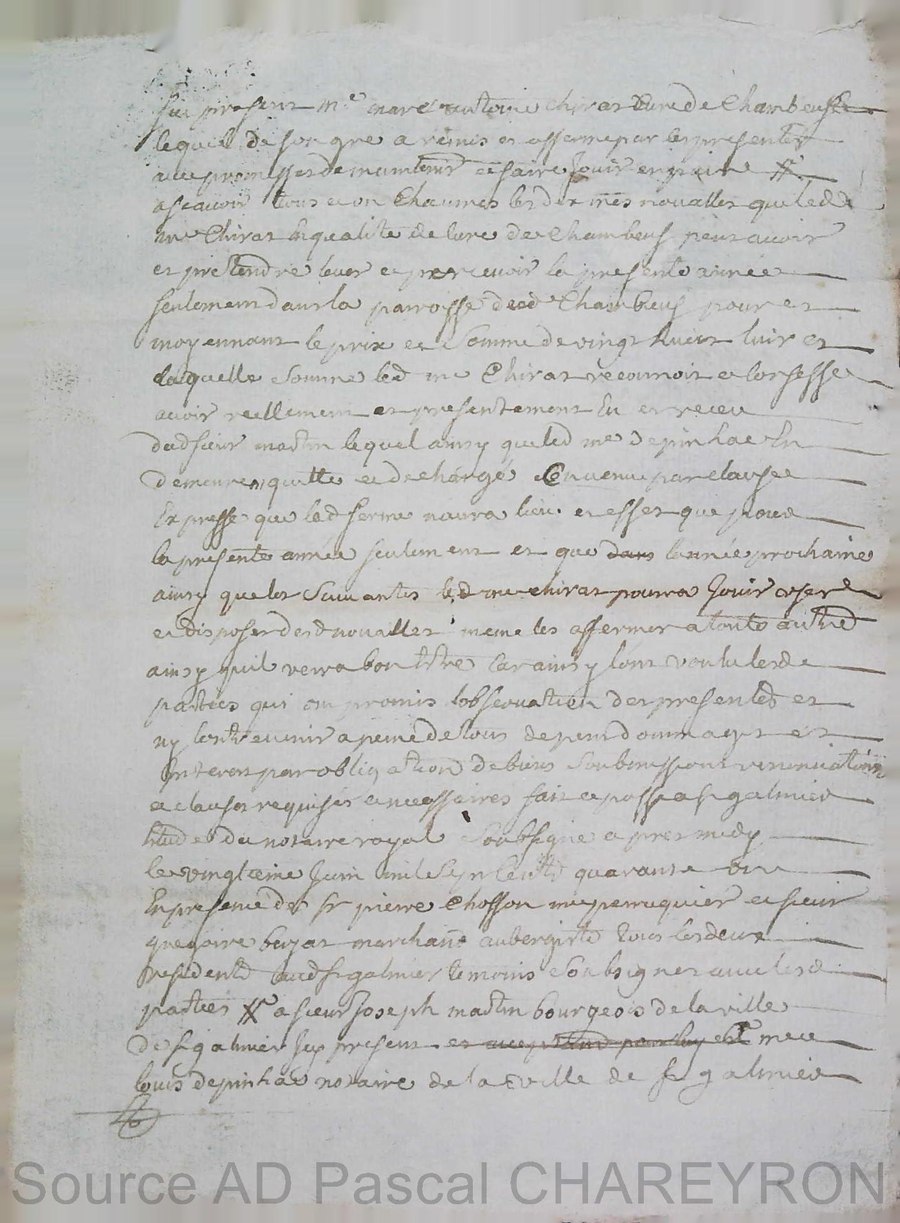 fut present me marc antoine Chirat Curé de Chambeuf
lequel de son gré a remis et affermé par les presentes
avec promesses de maintenir et faire Jouir en paix #
ascavoir tous et un Chacuns les dixmes novalles que led
me Chirat En qualité de Curé de Chambeuf peut avoir
et pretendre lever et percevoir la presente année
seulement dans la parroisse dud Chambeuf pour et
moyennant le prix et Somme de vingt huict
laquelle Somme led me Chirat reconnoit et Confesse
avoir reellement et presentement Eu et receu
dud sieur martin lequel ainsy que led me depinhac En
demeurent quitte et decharge Convenu par clause
Expresse que lad ferme naura lieu et effet que pour
la presente année seulement et que dans lannée prochaine
ainsy que les Suivantes led me chirat pourra Jouir user
et disposer desd novalles meme les affermer a toute autre
ainsy quil verra bon Etre Car ainsy lont voulu lesd
parties qui ont promis lobservation des presentes et
ny Contrevenir a peine de tous depens dommages et
Interets par obligation de biens Soubmissions renonciations
et clauses requises et necessaires fait et passé a st galmier
Etude du notaire royal Soubsigné apres midy
le vingtieme Juin mil sept Cents quarante
En presence de sr pierre Chosson me perruquier et sieur
gregoire marchand aubergiste tous les deux
residents aud st galmier temoins Soubsignes avec lesd
parties # a sieur Joseph martin bourgeois de la ville
de st galmier icy present et acceptant par luy et me
louis depinhac notaire de la ville de st galmier
Source AD Pascal CHAREYRON